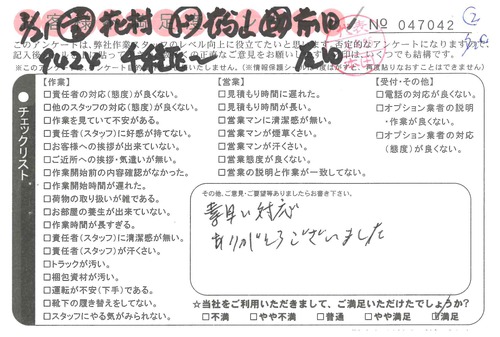 No 047042
このアンケートは、弊社作業スタッフのレベル向上に役立てたいと思い
否定的なアンケートになりますが
ご意見をお願いし
印はいくつでも結構です。
【作業】
□責任者の対応(態度)が良くない。
□他のスタッフの対応(態度)が良くない。
□作業を見ていて不安がある。
□責任者(スタッフ)に好感が持てない。
□お客様への挨拶が出来ていない。
□ご近所への挨拶・気遣いが無い。
□作業開始前の内容確認がなかった。
□作業開始時間が遅れた。
□荷物の取り扱いが雑である。
□お部屋の養生が出来ていない。
□作業時間が長すぎる。
□責任者(スタッフ)に清潔感が無い。
□責任者(スタッフ)が汗くさい。
□トラックが汚い。
□梱包資材が汚い。
□運転が不安(下手)である。
□靴下の履き替えをしてない。
□スタッフにやる気がみられない。
【営業】
□見積もり時間に遅れた。
□見積もり時間が長い。
□営業マンに清潔感が無い。
□営業マンが煙草くさい。
□営業マンが汗くさい。
□営業態度が良くない。
□営業の説明と作業が一致してない。
【受付・その他】
□電話の対応が良くない。
□オプション業者の説明
・作業が良くない。
□オプション業者の対応
(態度)が良くない。
チェックリスト
その他、ご意見・ご要望等ありましたらお書き下さい。
素早い対応
ありがとうございました
☆当社をご利用いただきまして、ご満足いただけたでしょうか?
□不満 □やや不満 □普通 □やや満足 □満足